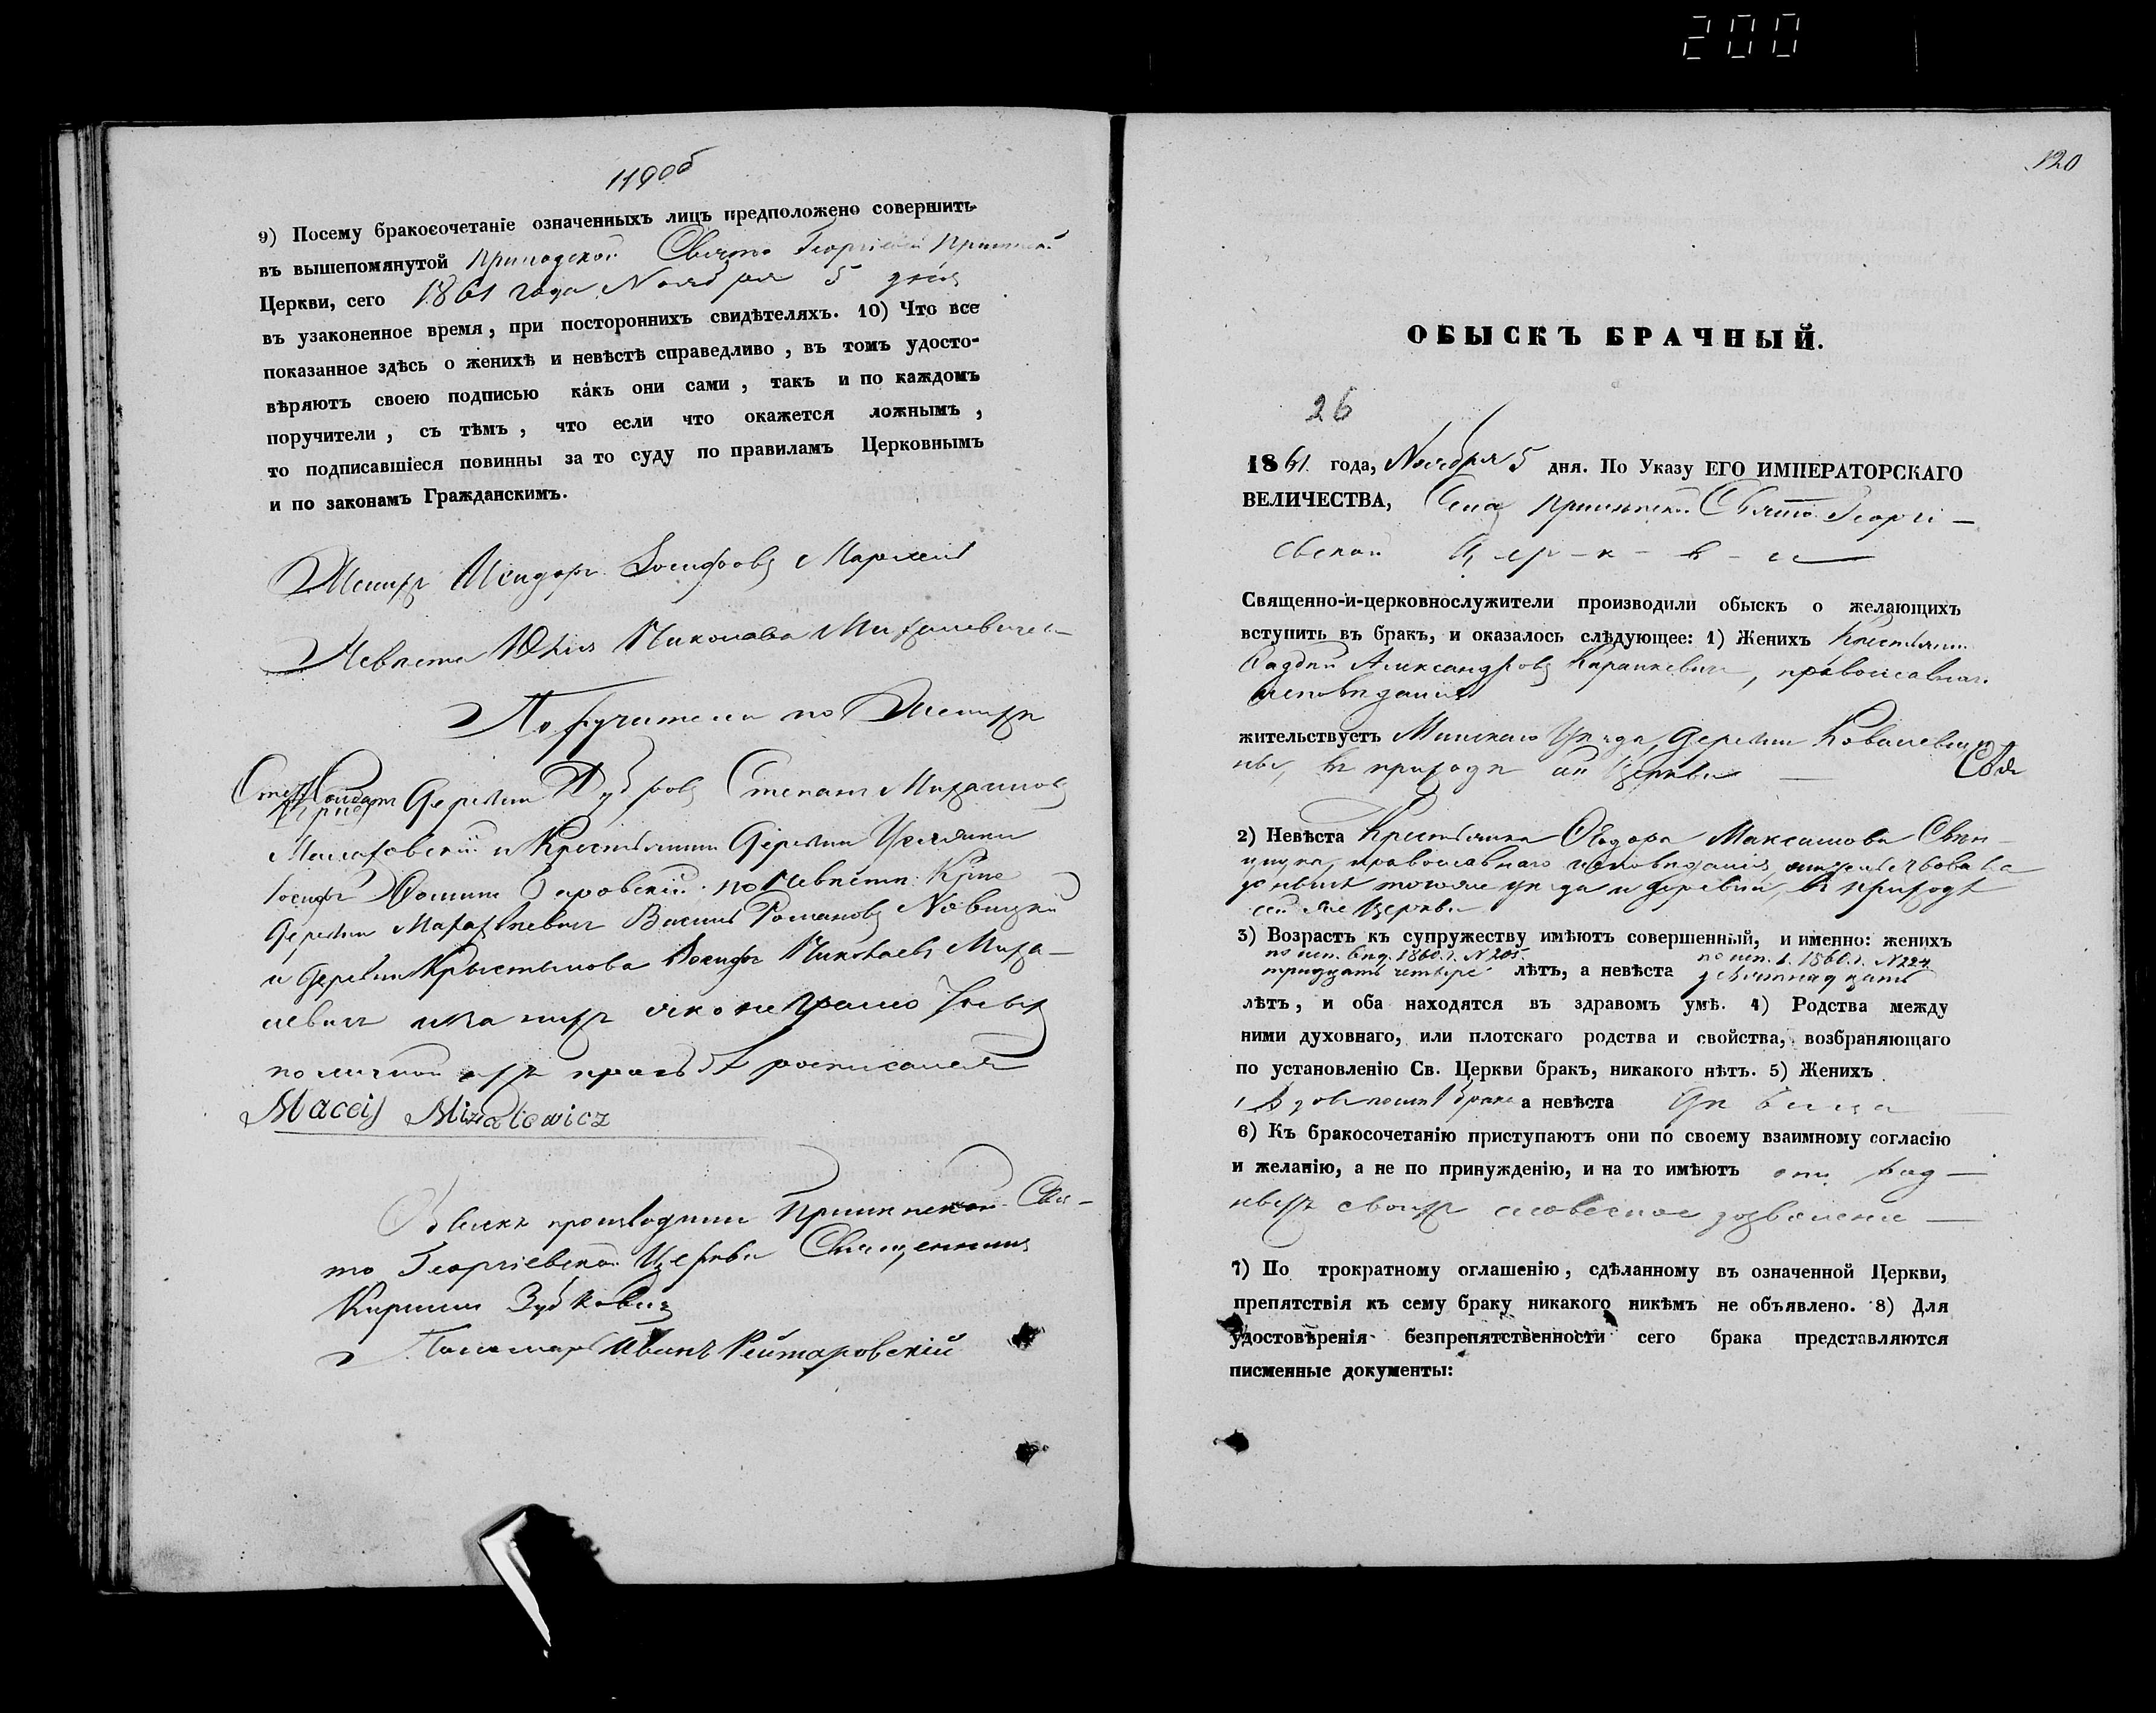 200
119об
9) Посему бракосочетаніе означенныхъ лицъ предположено совершить
въ вышепомянутой Приходской Свято Георгіевской
Церкви, сего 1861 года Ноября 5 дня
въ узаконенное время, при постороннихъ свидѣтеляхъ. 10) Что все
показанное здѣсь о женихѣ и невѣстѣ справедливо, въ томъ удосто-
вѣряютъ своею подписью какъ они сами, такъ и по каждомъ
поручители, съ тѣмъ, что если что окажется ложнымъ,
то подписавшіеся повинны за то суду по правиламъ Церковнымъ
и по законамъ Гражданскимъ.
Женихъ Исидоръ Іосифовъ
Невѣста Юлія Николаева
Поручители по Женихѣ
деревни Степанъ Михаиловъ
и Крестьянинъ деревни
Іосифъ по Невѣстѣ Крест
деревни Василь Романовъ Новицкій
и деревни Іосифъ Николаевъ Миха-
левичъ а за нихъ
по личной ихъ просьбѣ росписался
Maceij Michalewicz
Обыскъ производили Свя-
то Георгіевской Церкви Священникъ
Кириллъ Зубковичъ
Пономарь Иванъ Рейтаровскій
120
ОБЫСКЪ БРАЧНЫЙ.
26
1861 года, Ноября 5 дня. По Указу ЕГО ИМПЕРАТОРСКАГО
ВЕЛИЧЕСТВА, Свято Георгі-
евской Цер-к-в-и
Священно-и-церковнослужители производили обыскъ о желающихъ
вступить въ бракъ, и оказалось слѣдующее: 1) Женихъ Крестьянинъ
Александровъ православнаго
исповѣданія
жительствуетъ Минскаго Уѣзда, деревни
въ приходѣ сей Церкви
2) Невѣста Крестьянка Ѳеодора Максимова
православнаго исповѣданія, жительствовала
до нынѣ того же уѣзда и деревни, въ приходѣ
сей же Церкви
3) Возрастъ къ супружеству имѣютъ совершенный, и именно: женихъ
по исп. вѣд. 1860. г. N 205. по исп. в. 1860. г. N 224
тридцать четыре лѣтъ, а невѣста девятнадцать
лѣтъ, и оба находятся въ здравомъ умѣ. 4) Родства между
ними духовнаго, или плотскаго родства и свойства, возбраняющаго
по установленію Св. Церкви бракъ, никакого нѣтъ. 5) Женихъ
вдовъ брака а невѣста дѣвица
6) Къ бракосочетанію приступаютъ они по своему взаимному согласію
и желанію, а не по принужденію, и на то имѣютъ отъ род-
ныхъ своихъ словесное дозволеніе
7) По трократному оглашенію, сдѣланному въ означенной Церкви,
препятствія къ сему браку никакого никѣмъ не объявлено. 8) Для
удостовѣренія безпрепятственности сего брака представляются
писменные документы: